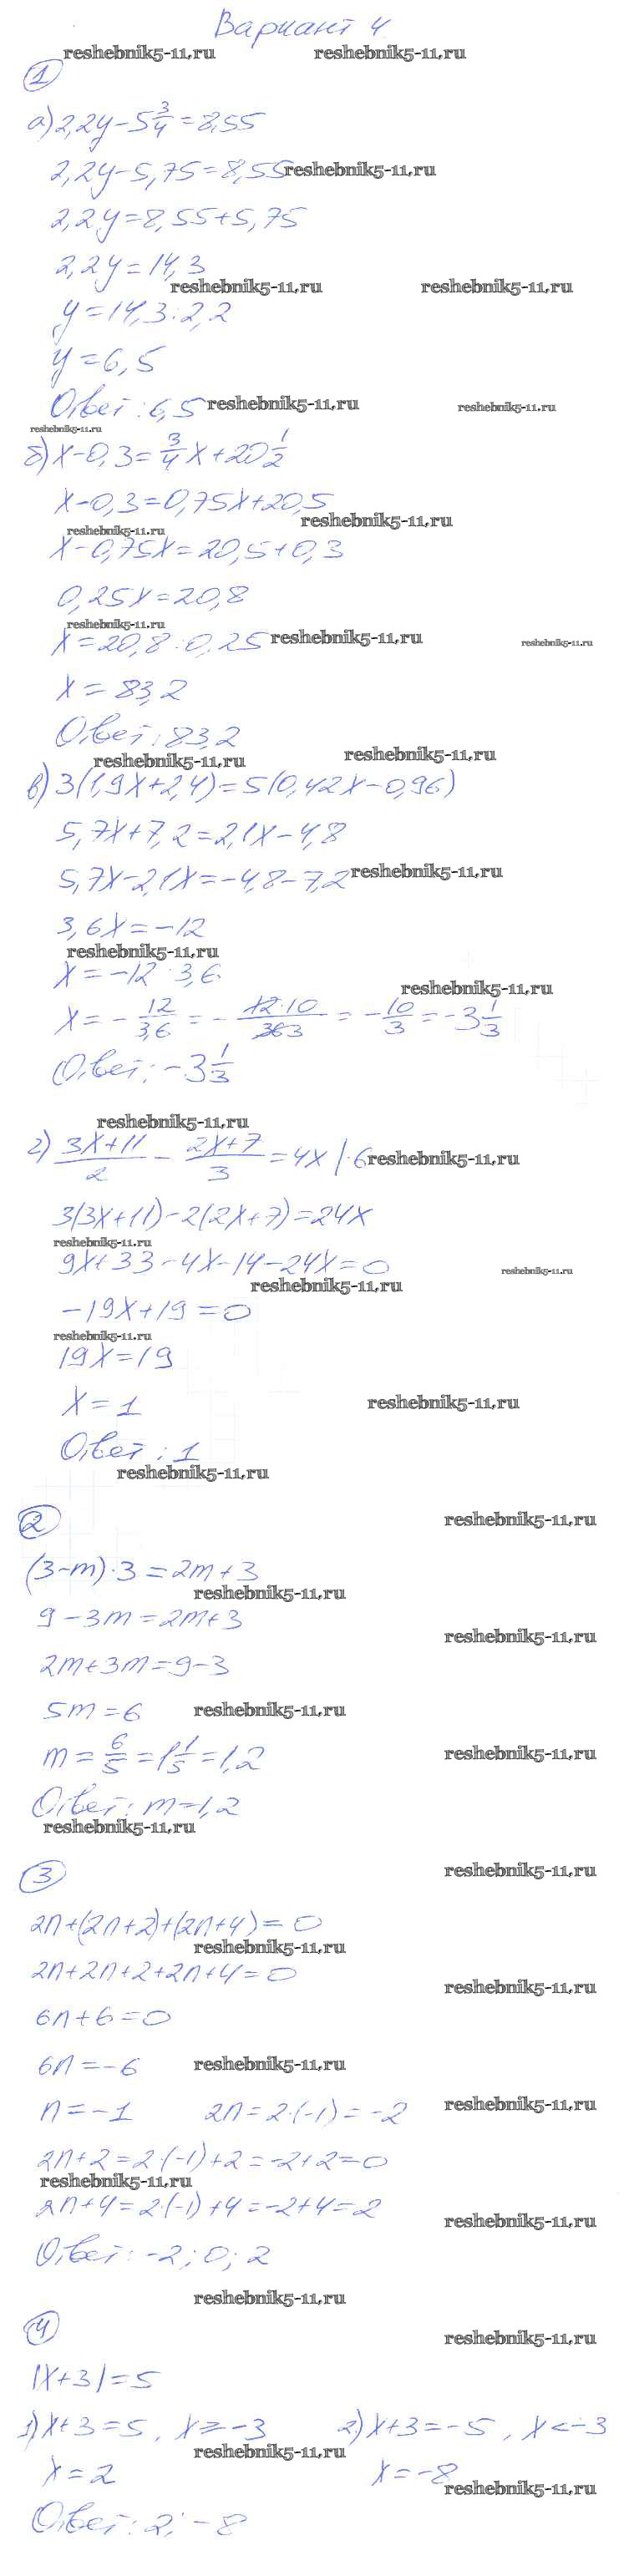 Вариант 4
reshebnik5-11.ru reshebnik5-11.ru
1
а) 2,2y-5 3/4=8,55
2,2y-5,75=8,55 reshebnik5-11.ru
2,2y=8,55+5,75
2,2y=14,3
reshebnik5-11.ru reshebnik5-11.ru
y=14,3:2,2
y=6,5
Ответ: 6,5 reshebnik5-11.ru reshebnik5-11.ru
reshebnik5-11.ru
б) x-0,3=3/4x+20 1/2
x-0,3=0,75x+20,5
reshebnik5-11.ru
reshebnik5-11.ru
x-0,75x=20,5+0,3
0,25x=20,8
reshebnik5-11.ru
x=20,8:0,25 reshebnik5-11.ru reshebnik5-11.ru
x=83,2
Ответ: 83,2
reshebnik5-11.ru reshebnik5-11.ru
в) 3(1,9x+2,4)=5(0,42x-0,96)
5,7x+7,2=2,1x-4,8
5,7x-2,1x=-4,8-7,2 reshebnik5-11.ru
3,6x=-12
reshebnik5-11.ru
x=-12:3,6
reshebnik5-11.ru
x=-12/3,6=-12·10/36 3=-10/3=-3 1/3
Ответ: -3 1/3
reshebnik5-11.ru
г) (3x+11)/2-(2x+7)/3=4x |·6 reshebnik5-11.ru
3(3x+11)-2(2x+7)=24x
reshebnik5-11.ru
9x+33-4x-14-24x=0 reshebnik5-11.ru
reshebnik5-11.ru
-19x+19=0
reshebnik5-11.ru
19x=19
x=1 reshebnik5-11.ru
Ответ: 1
reshebnik5-11.ru
2 reshebnik5-11.ru
(3-m)·3=2m+3
reshebnik5-11.ru
9-3m=2m+3
reshebnik5-11.ru
2m+3m=9-3
5m=6 reshebnik5-11.ru
m=6/5=1 1/5=1,2 reshebnik5-11.ru
Ответ: m=1,2
reshebnik5-11.ru
3 reshebnik5-11.ru
2n+(2n+2)+(2n+4)=0
reshebnik5-11.ru
2n+2n+2+2n+4=0
reshebnik5-11.ru
6n+6=0
6n=-6 reshebnik5-11.ru
n=-1 2n=2·(-1)=-2 reshebnik5-11.ru
2n+2=2·(-1)+2=-2+2=0
reshebnik5-11.ru
2n+4=2·(-1)+4=-2+4=2
reshebnik5-11.ru
Ответ: -2; 0; 2
reshebnik5-11.ru
4 reshebnik5-11.ru
|x+3|=5
1) x+3=5, x≥-3 2) x+3=-5, x<-3
reshebnik5-11.ru
x=2 x=-8
reshebnik5-11.ru
Ответ: 2; -8